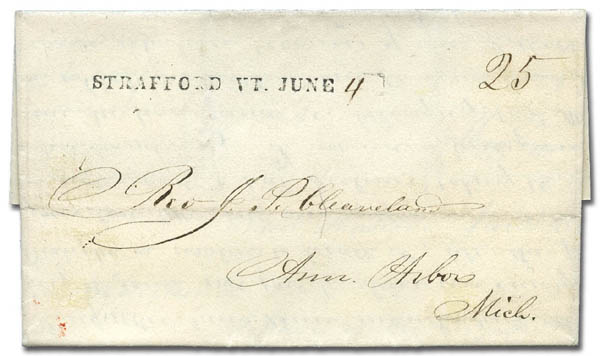 STRAFFORD VT. JUNE 4 25
Rev J. P. Cleaveland
Ann. Arbor
Mich.